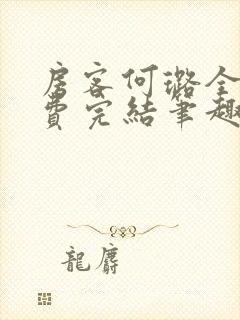 房客何璐全
費完結筆趣
龍麝